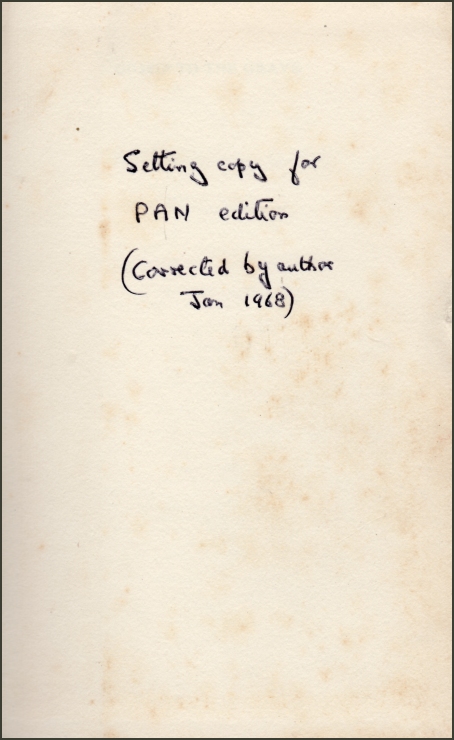 Setting copy for
PAN edition
(Corrected by author
Jan 1968)